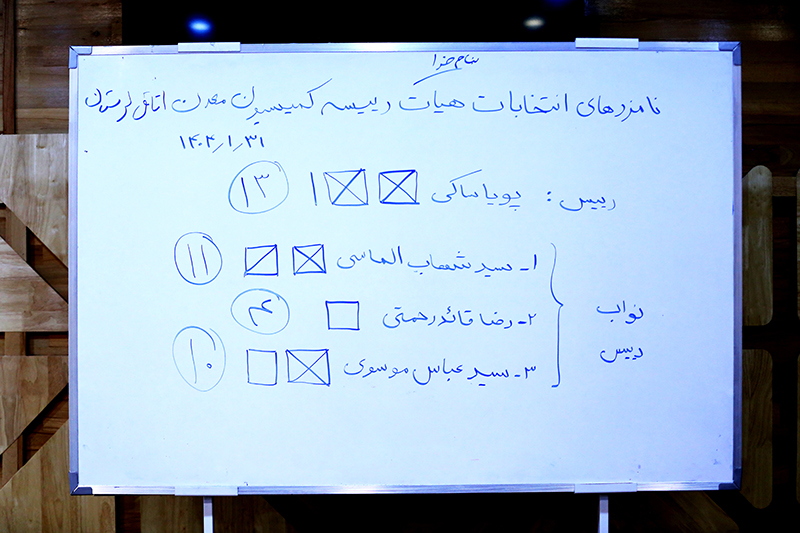 بنام خدا
نامزدهای انتخابات هیات رییسه کمیسیون معدن اتاق لرستان
۱۴۰۴/۱/۳۱
رییس : پویا ساکی ۱۳
نواب رییس
۱- سید شهاب الماسی ۱۱
۲- رضا قائدرحمتی ۴
۳- سید عباس موسوی ۱۰